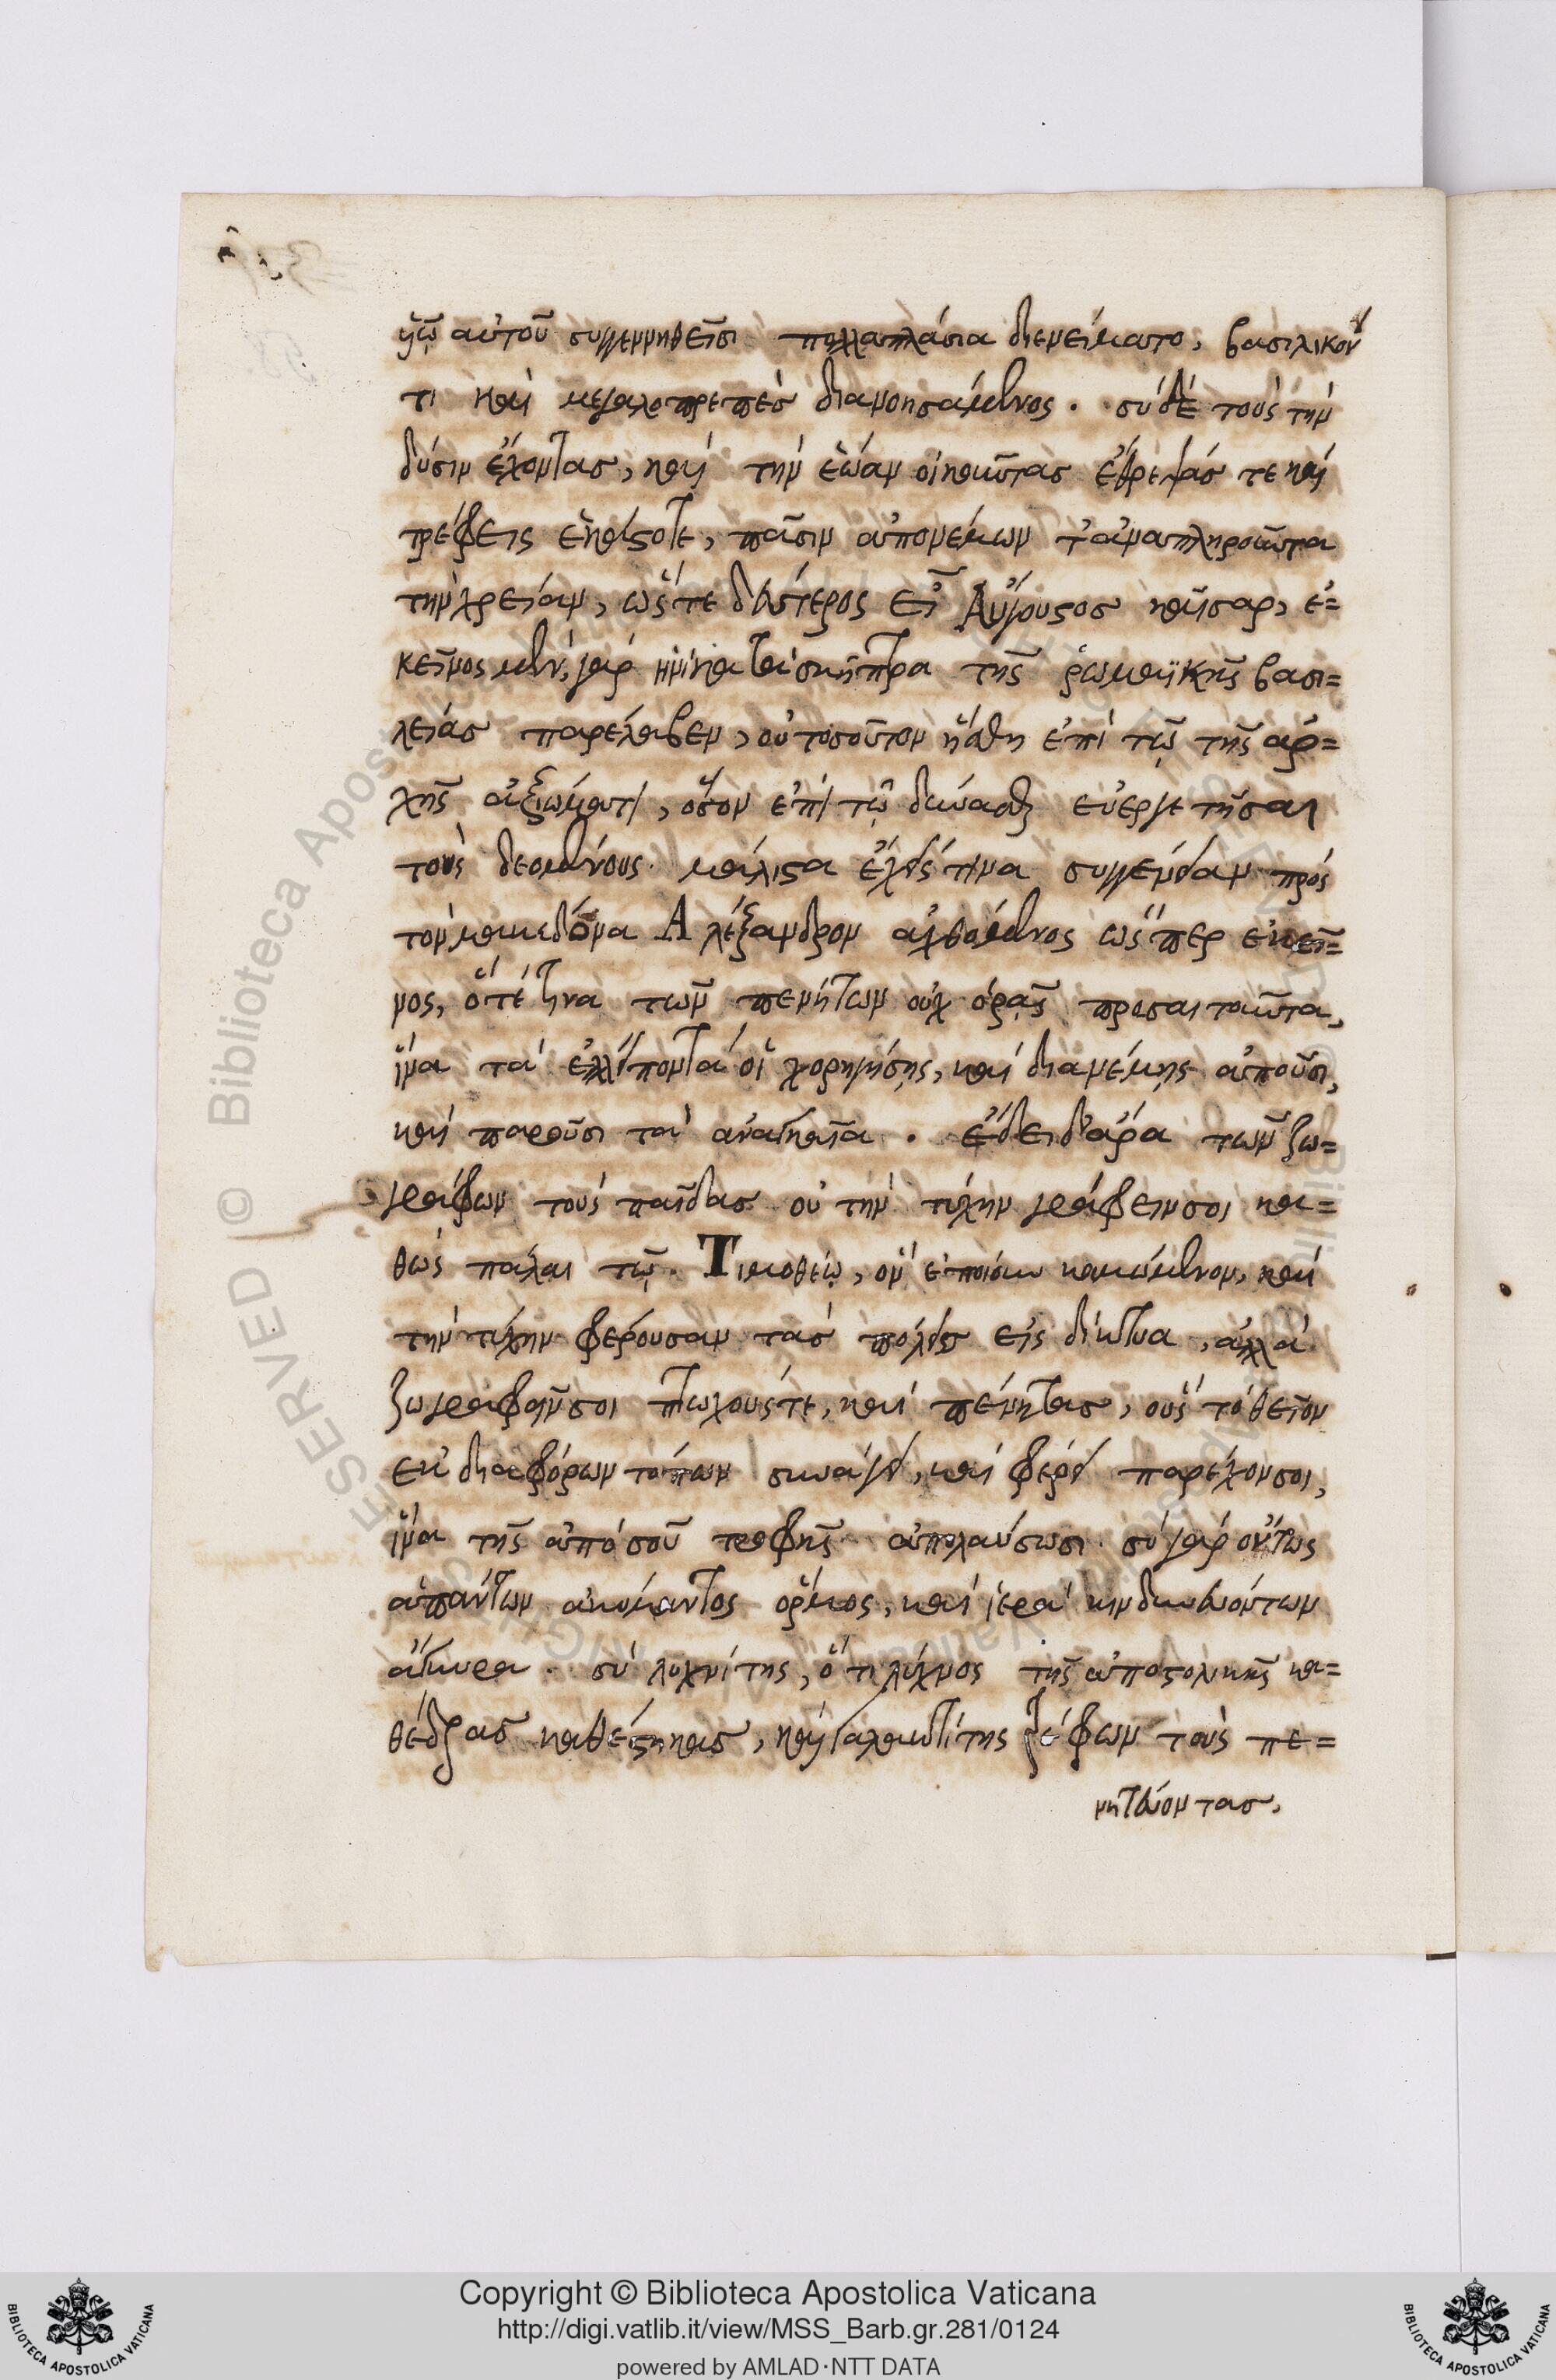 υἱῷ αὐτοῦ συγγεννηθεῖσι πολλαπλάσια διενείματο, βασιλικόν
τι καὶ μεγαλοπρεπὲσ διανοησάμενος. σὺ δὲ τοὺς τὴν
δύσιν ἔχοντασ, καὶ τὴν ἑώαν οἰκοῦντασ ἔθρεψάσ τε καὶ
τρέφεις ἑκάστοτε, πᾶσιν ἀπονέμων τἀναπληροῦντα
τὴν χρείαν, ὥστε δεύτερος εἶ Αὔγουστοσ καῖσαρ, ἐ=
κεῖνος μὲν γὰρ ἡνίκα τὰ σκῆπτρα τῆς ῥωμαϊκῆς βασι=
λείασ παρέλαβεν, οὐ τοσοῦτον ἥσθη ἐπὶ τῷ τῆς ἀρ=
χῆς ἀξιώματι, ὅσον ἐπὶ τῷ δύνασθαι εὐεργετῆσαι
τοὺς δεομένους. μάλιστα ἔχεις τινα συγγένειαν πρὸς
τὸν μακεδόνα Ἀλέξανδρον ἀχθόμενος ὥσπερ ἐκεῖ=
νος, ὅτε τινα τῶν πενήτων οὐχ ὁρᾷς προσαιτοῦντα,
ἵνα τὰ ἐλλείποντα οἱ χορηγήσῃς, καὶ διανέμῃς ἀποῦσι,
καὶ παροῦσι τὰ ἀναγκαῖα. ἔδει δ' ἄρα τῶν ζω=
γράφων τοὺς παῖδασ οὐ τὴν τύχην γράφειν σοι κα=
θὼς πάλαι τῷ Τιμοθέῳ, ὃν ἐποίουν κοιμώμενον, καὶ
τὴν τύχην φέρουσαν τὰσ πόλεισ εἰς δίκτυα, ἀλλὰ
ζωγραφεῖν σοι πτωχούς τε, καὶ πένητασ, οὓς τὸ θεῖον
ἐκ διαφόρων τόπων συνάγει, καὶ φέρει παρέχον σοι,
ἵνα τῆς ἀπὸ σοῦ τροφῆς ἀπολαύσωσι. σὺ γὰρ ὄντως
ἁπάντων ἀκύμαντος ὅρμος, καὶ ἱερὰ κινδυνευόντων
ἄγκυρα. σὺ λυχνίτης, ὅτι λύχνος τῆς ἀποστολικῆς κα=
θέδρασ καθέστηκασ, καὶ γαλακτίτης τρέφων τοὺς πε=
νητεύοντασ,